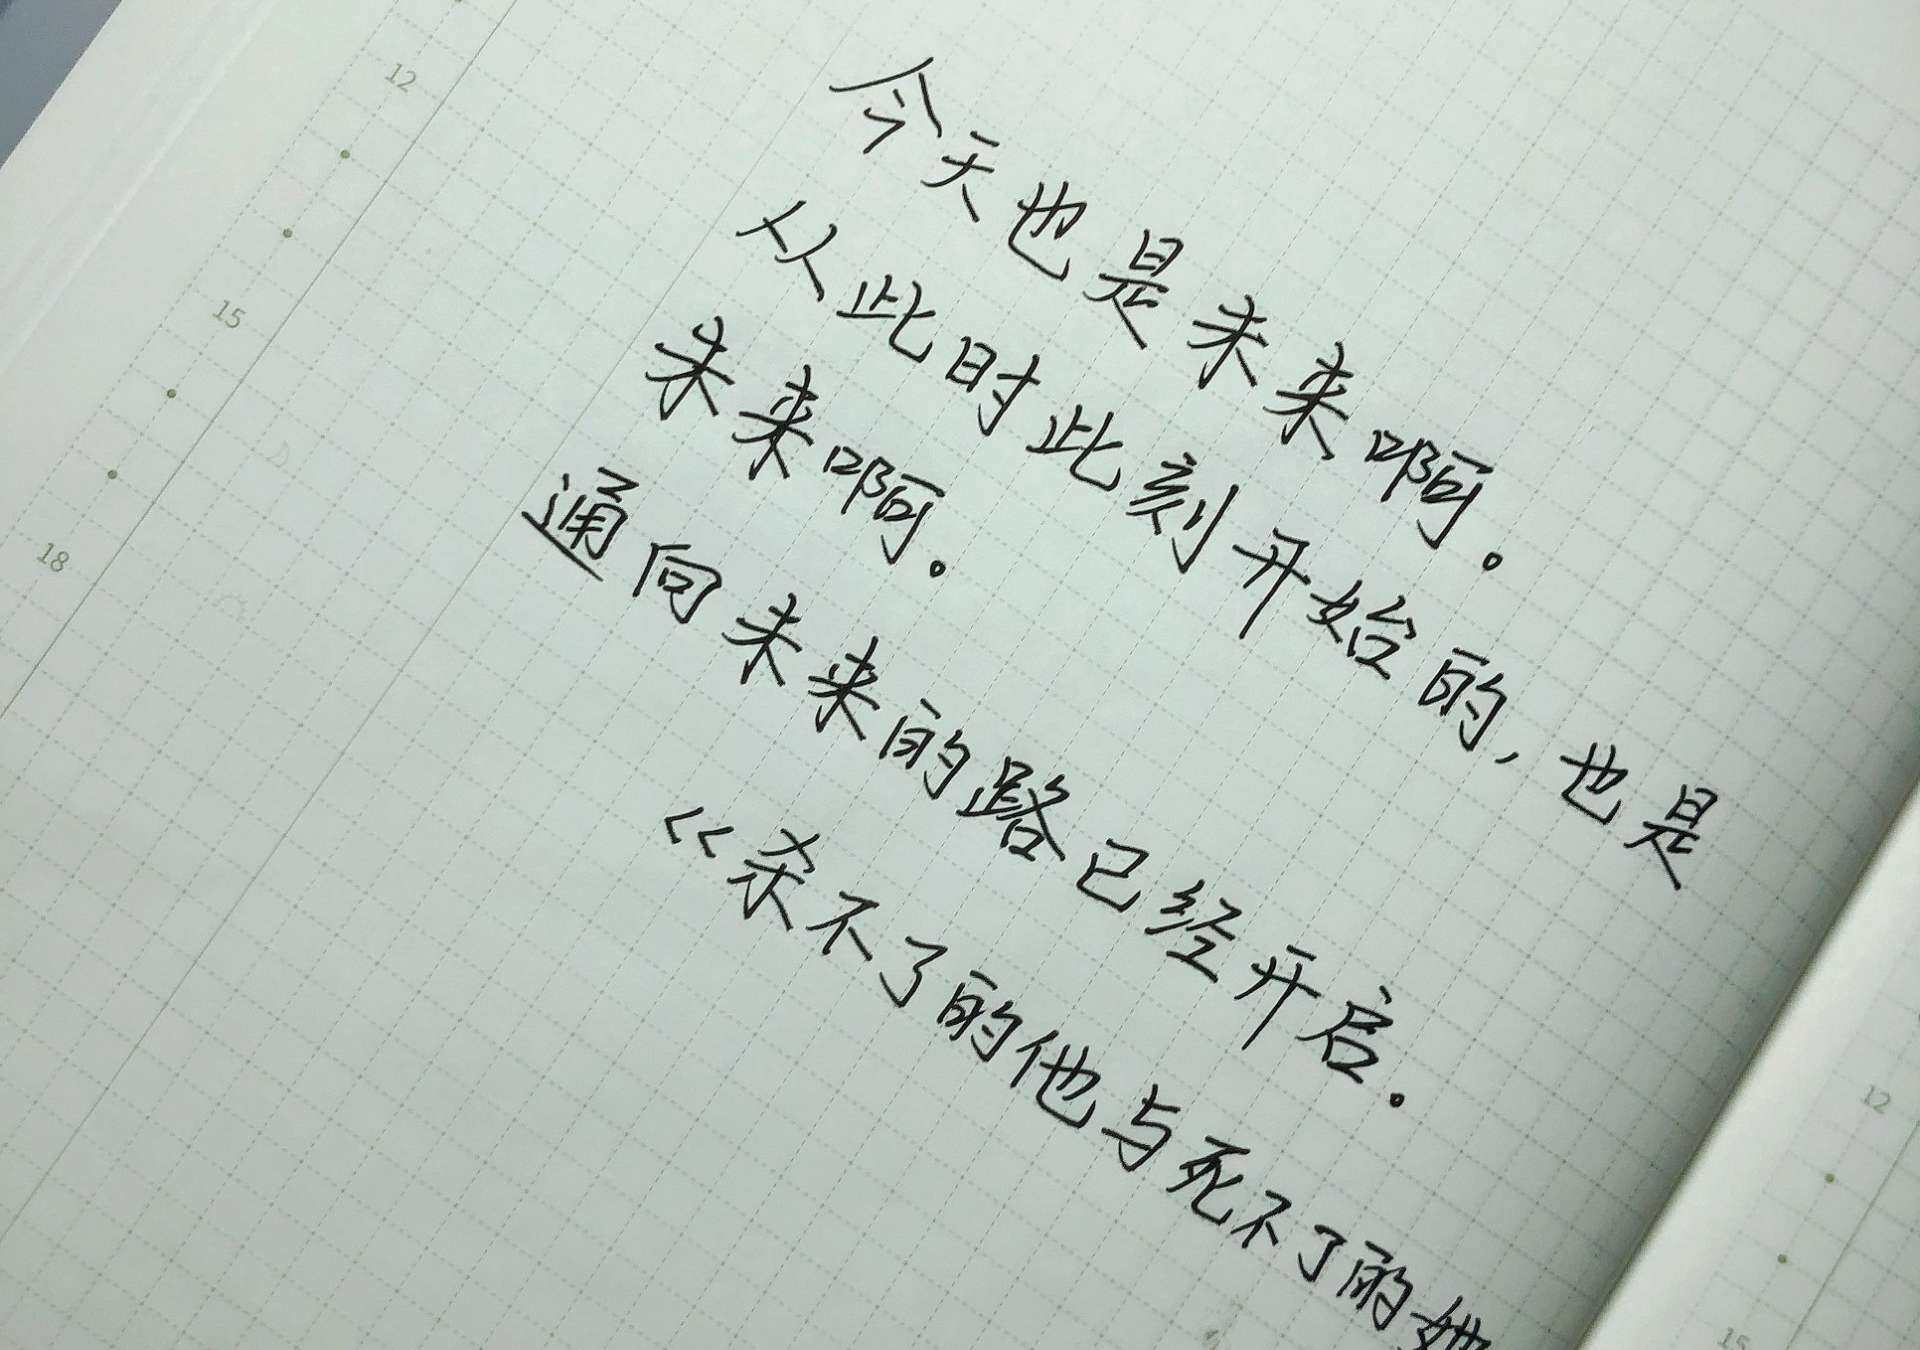 今天也是未来啊。
从此时此刻开始的，也是
未来啊。
通向未来的路已经开启。
《杀不了的他与死不了的她
12
15
18
12
15